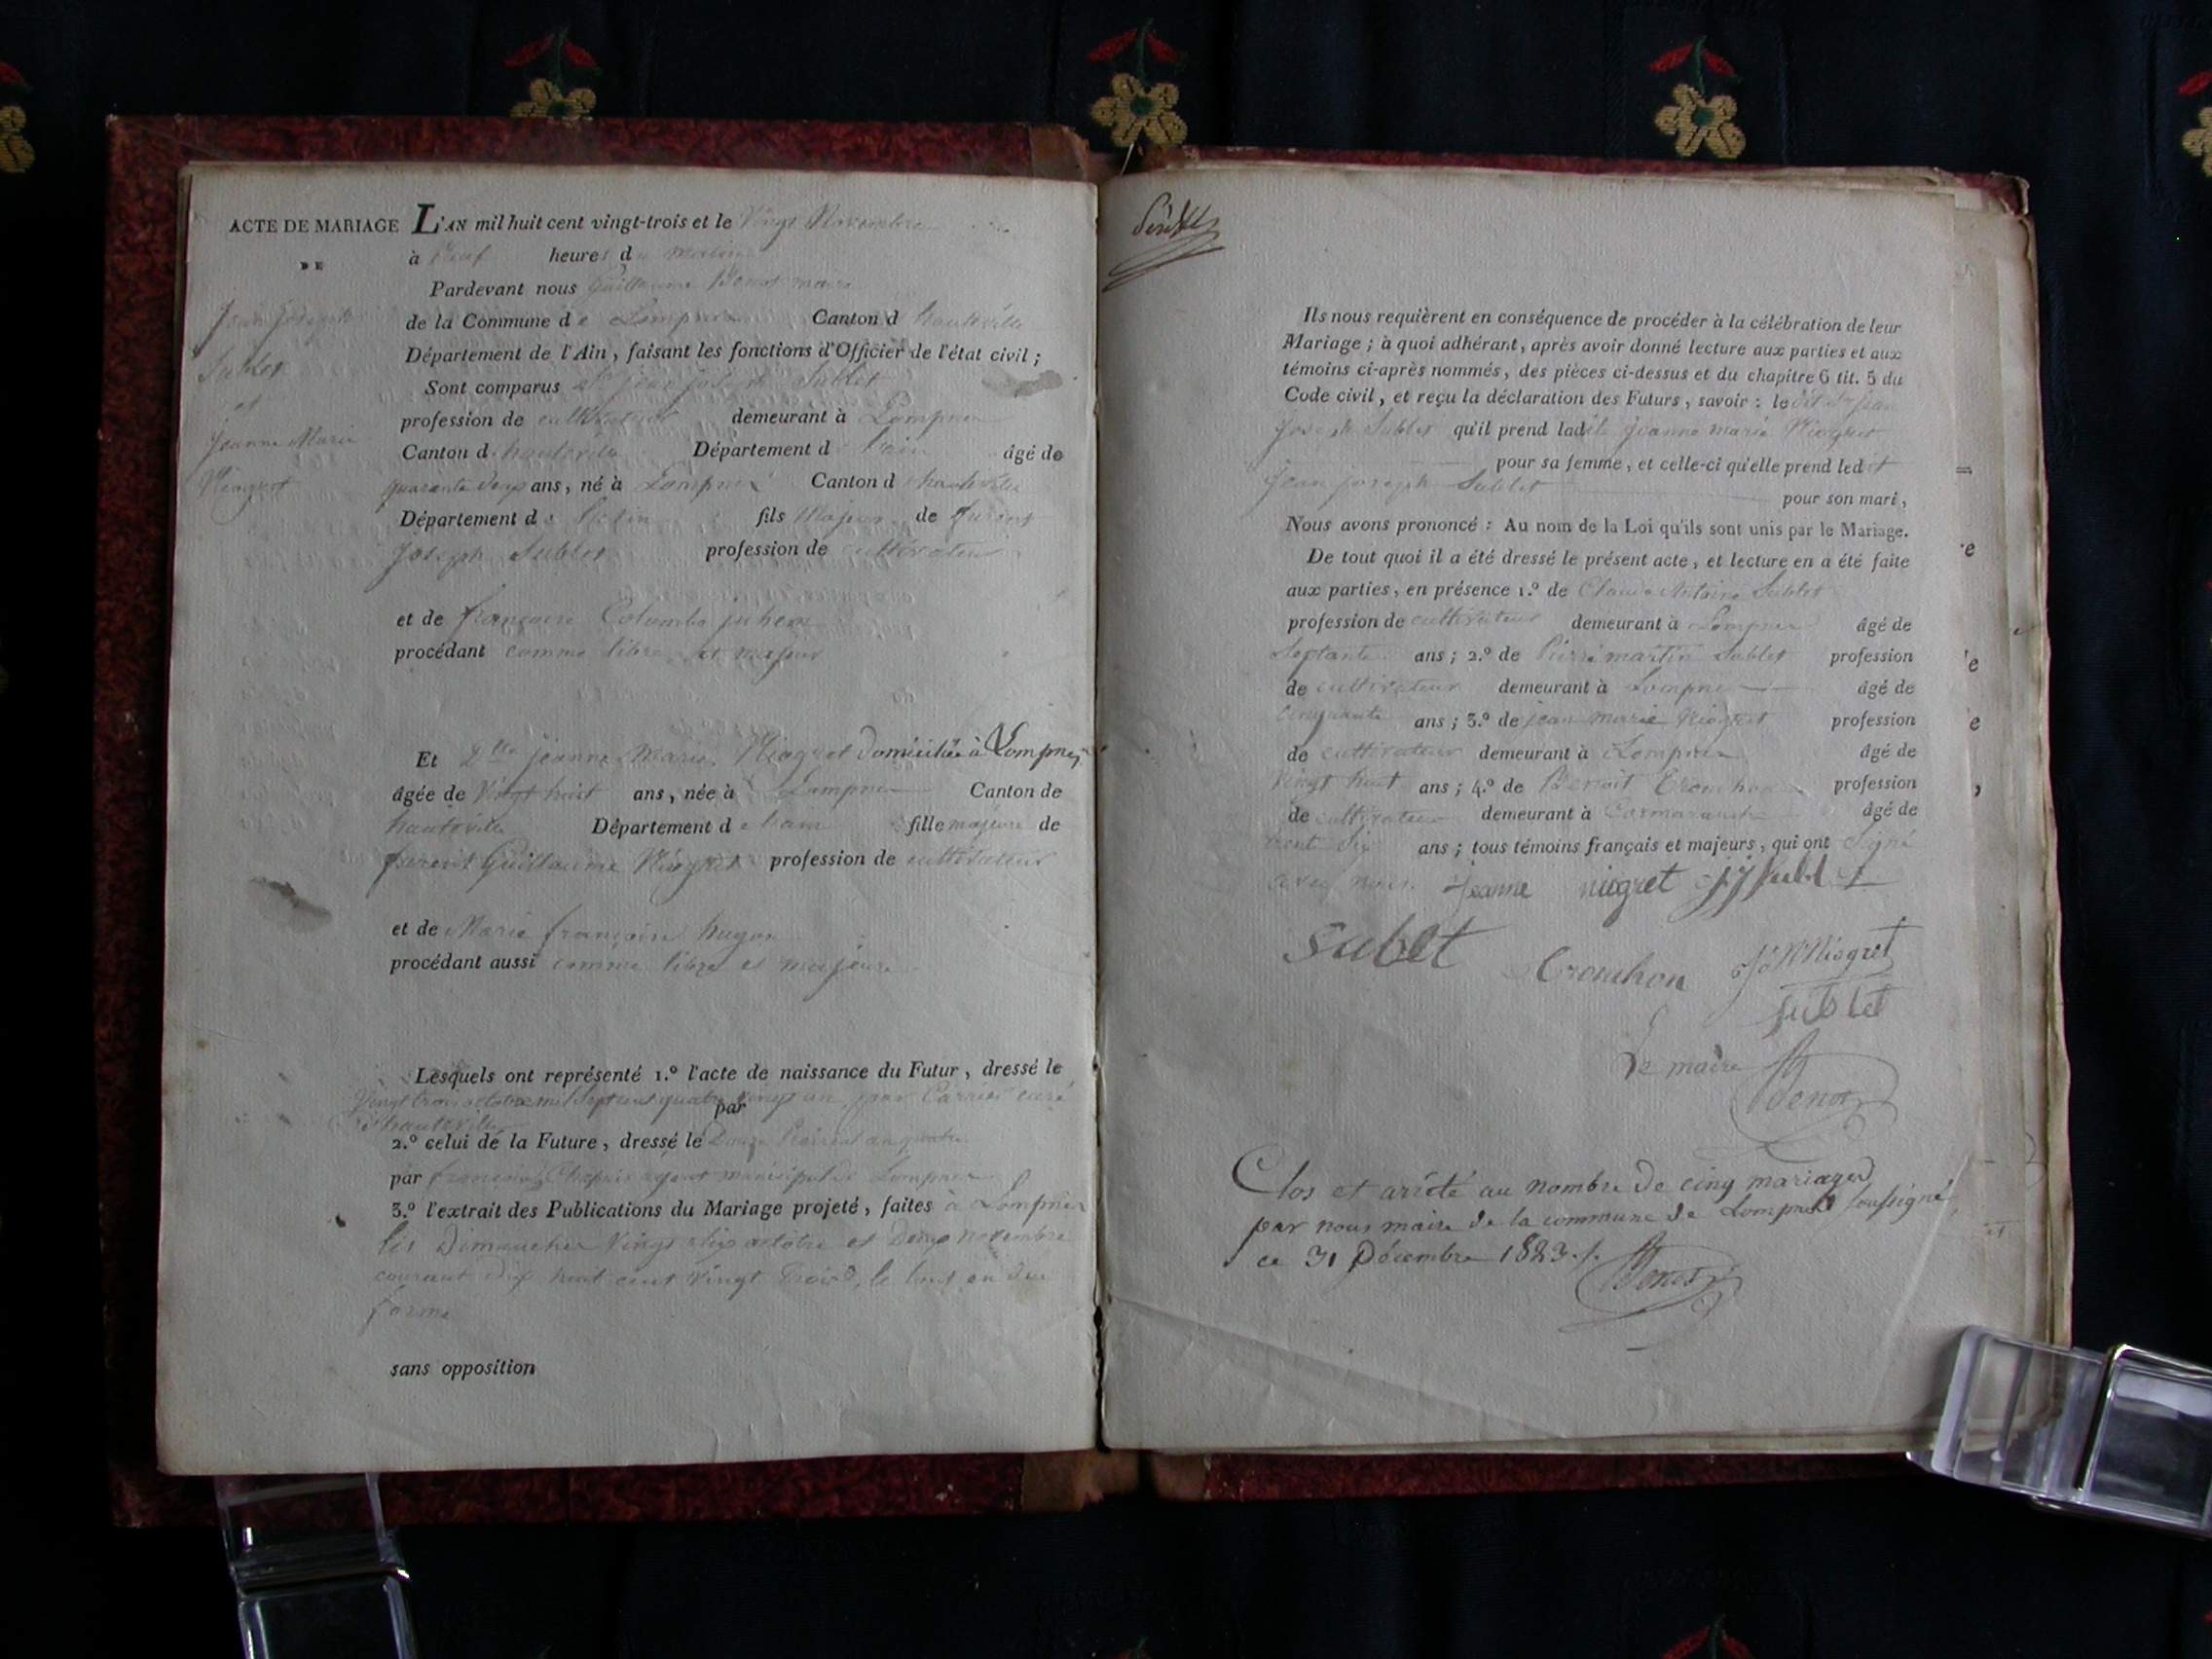 ACTE DE MARIAGE
DE
Jean Joseph
Sublet
et
Jeanne Marie
Niogret
L'AN mil huit cent vingt-trois et le Vingt Novembre
à Neuf heures du matin
Pardevant nous Guillaume Benot maire
de la Commune de Lompnes Canton d hauteville
Département de l'Ain, faisant les fonctions d'Officier de l'état civil;
Sont comparus jean joseph Sublet
profession de cultivateur demeurant à Lompnes
Canton d hauteville Département d l'ain âgé de
quarante deux ans, né à Lompnes Canton d hauteville
Département de l'ain fils Majeur de furent
Joseph Sublet profession de cultivateur
et de françoise Colombe
procédant comme libre et majeur
Et Dlle jeanne Marie Niogret domiciliée à Lompnes
âgée de Vingt huit ans, née à Lompnes Canton de
hauteville Département de l'ain fille majeure de
furent Guillaume Niogret profession de cultivateur
et de Marie françoise hugon
procédant aussi comme libre et majeure
Lesquels ont représenté 1.º l'acte de naissance du Futur, dressé le
Vingt trois octobre mil Sept cent quatre vingt un par par Carrier curé
d'hauteville
2.º celui de la Future, dressé le Douze an quatre
par françois agent municipal de Lompnes
3.º l'extrait des Publications du Mariage projeté, faites à Lompnes
les Dimanches Vingt Six octobre et Deux novembre
courant dix huit cent vingt trois, le tout en due
forme
sans opposition
Ils nous requièrent en conséquence de procéder à la célébration de leur
Mariage; à quoi adhérant, après avoir donné lecture aux parties et aux
témoins ci-après nommés, des pièces ci-dessus et du chapitre 6 tit. 5 du
Code civil, et reçu la déclaration des Futurs, savoir: le dit Sr jean
Joseph Sublet qu'il prend ladite jeanne marie Niogret
pour sa femme, et celle-ci qu'elle prend ledit
Jean joseph Sublet pour son mari,
Nous avons prononcé: Au nom de la Loi qu'ils sont unis par le Mariage.
De tout quoi il a été dressé le présent acte, et lecture en a été faite
aux parties, en présence 1.º de Claude Antoine Sublet
profession de cultivateur demeurant à Lompnes âgé de
Septante ans; 2.º de Pierre martin Sublet profession
de cultivateur demeurant à Lompnes âgé de
cinquante ans; 3.º de jean marie Niogret profession
de cultivateur demeurant à Lompnes âgé de
Vingt huit ans; 4.º de Benoit Cronchon profession
de cultivateur demeurant à Cormaranche âgé de
trent Six ans; tous témoins français et majeurs, qui ont Signé
avec nous. Jeanne niogret jj Sublet
sublet Cronchon J M Niogret
sublet
Le maire Benot
Clos et arrêté au nombre de cinq mariages
par nous maire de la commune de Lompnes soussigné,
ce 31 Décembre 1823./.
Benot